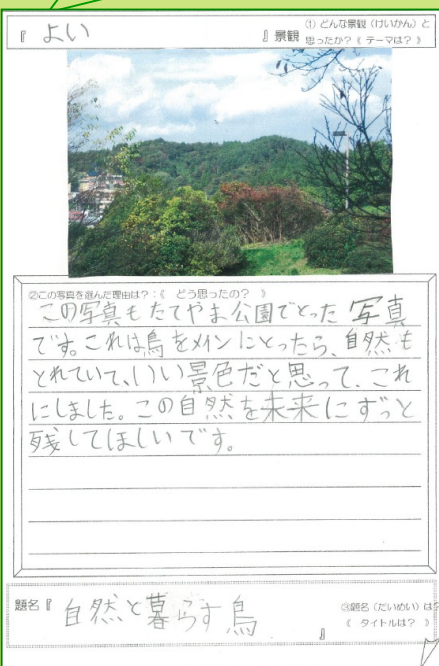 『 よい 』景観 ① どんな景観(けいかん)と
思ったか?《 テーマは? 》
②この写真を選んだ理由は?:《 どう思ったの? 》
この写真もたてやま公園でとった写真
です。これは鳥をメインにとったら、自然も
とれていて、いい景色だと思って、これ
にしました。この自然を未来にずっと
残してほしいです。
題名『 自然と暮らす鳥 』 ③題名(だいめい)は?
《 タイトルは? 》